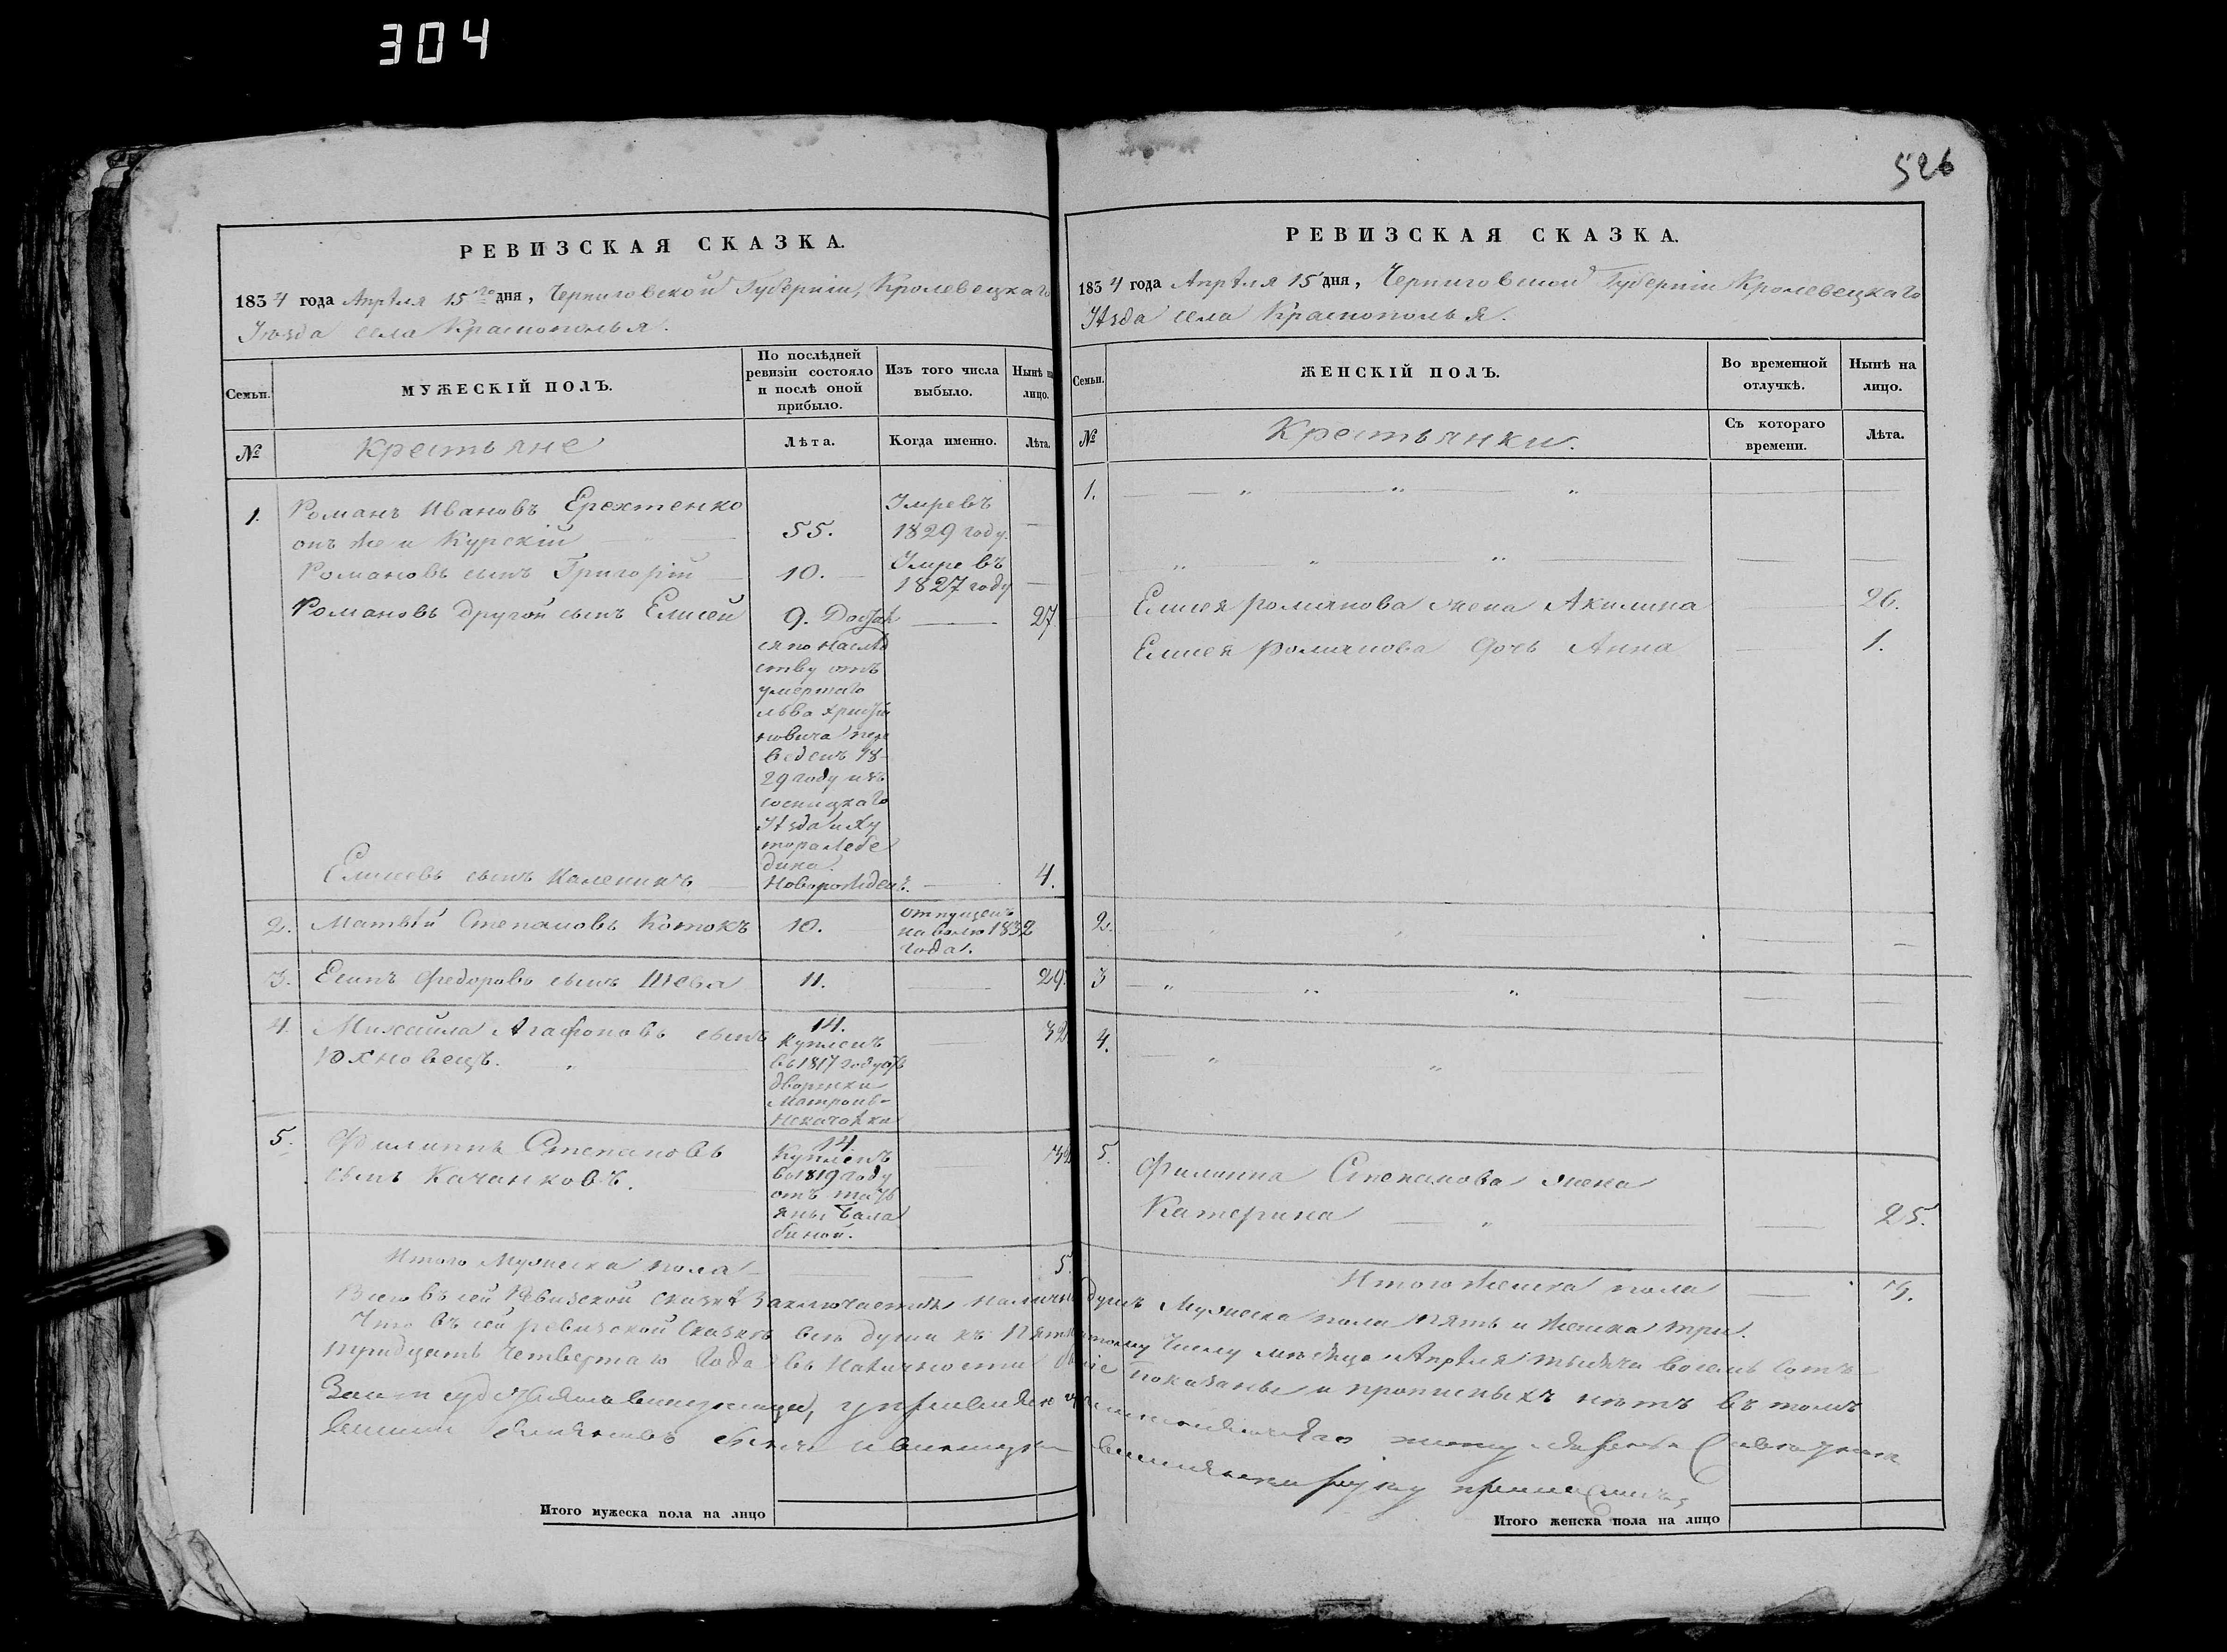 304
526
РЕВИЗСКАЯ СКАЗКА.
1834 года Апрѣля 15го дня, Черниговской Губерніи, Кролевецкаго
Уѣзда села Краснополья.
Семьи.
МУЖЕСКІЙ ПОЛЪ.
По послѣдней ревизіи состояло и послѣ оной прибыло.
Изъ того числа выбыло.
Нынѣ на лицо.
№
Крестьяне
Лѣта.
Когда именно.
Лѣта.
1. Романъ Ивановъ Ерехтенко
онъ же и Курскій 55. Умре въ 1829 году.
Романовъ сынъ Григорій 10. Умре въ 1827 году
Романовъ другой сынъ Елисей 9. 27
ся по наслѣд
ству отъ
умершаго
Льва
новича пере
веденъ 18
29 году изъ
сосницкаго
Уѣзда и Ху
тора Лебе
дина.
Елисеевъ сынъ Каленикъ Новорожденъ. 4.
2. Матвѣй Степановъ Котокъ 10. отпущенъ
на волю 1832
года.
3. Есипъ Федоровъ сынъ Шева 11. 29.
4. Михайла Агафоновъ сынъ 14. 32
Юхновецъ. Купленъ
въ 1817 году отъ
дворянки
Матроны
5. Филиппъ Степановъ 14. 32
сынъ Качанковъ. Купленъ
въ 1819 году
отъ тать
яны Бала
биной.
Итого Мужеска пола 5.
РЕВИЗСКАЯ СКАЗКА.
1834 года Апрѣля 15 дня, Черниговской Губерніи Кролевецкаго
Уѣзда села Краснополья.
Семьи.
ЖЕНСКІЙ ПОЛЪ.
Во временной отлучкѣ.
Нынѣ на лицо.
№
Крестьянки.
Съ котораго времени.
Лѣта.
1.
Елисея романова жена Акилина 26.
Елисея романова дочь Анна 1.
2.
3
4.
5. Филиппа Степанова жена
Катерина 25.
Итого женска пола 3.
Всего въ сей Ревизской сказкѣ заключается наличныхъ душъ Мужеска пола пять и женска три.
Что въ сей ревизской сказкѣ всѣ души къ пятнатцатому числу мѣсяца Апрѣля тысяча восемь сотъ
тридцать четвертаго Года въ наличности бывшіе показаны и прописныхъ нѣтъ въ томъ
руку приложилъ
Итого мужеска пола на лицо
Итого женска пола на лицо